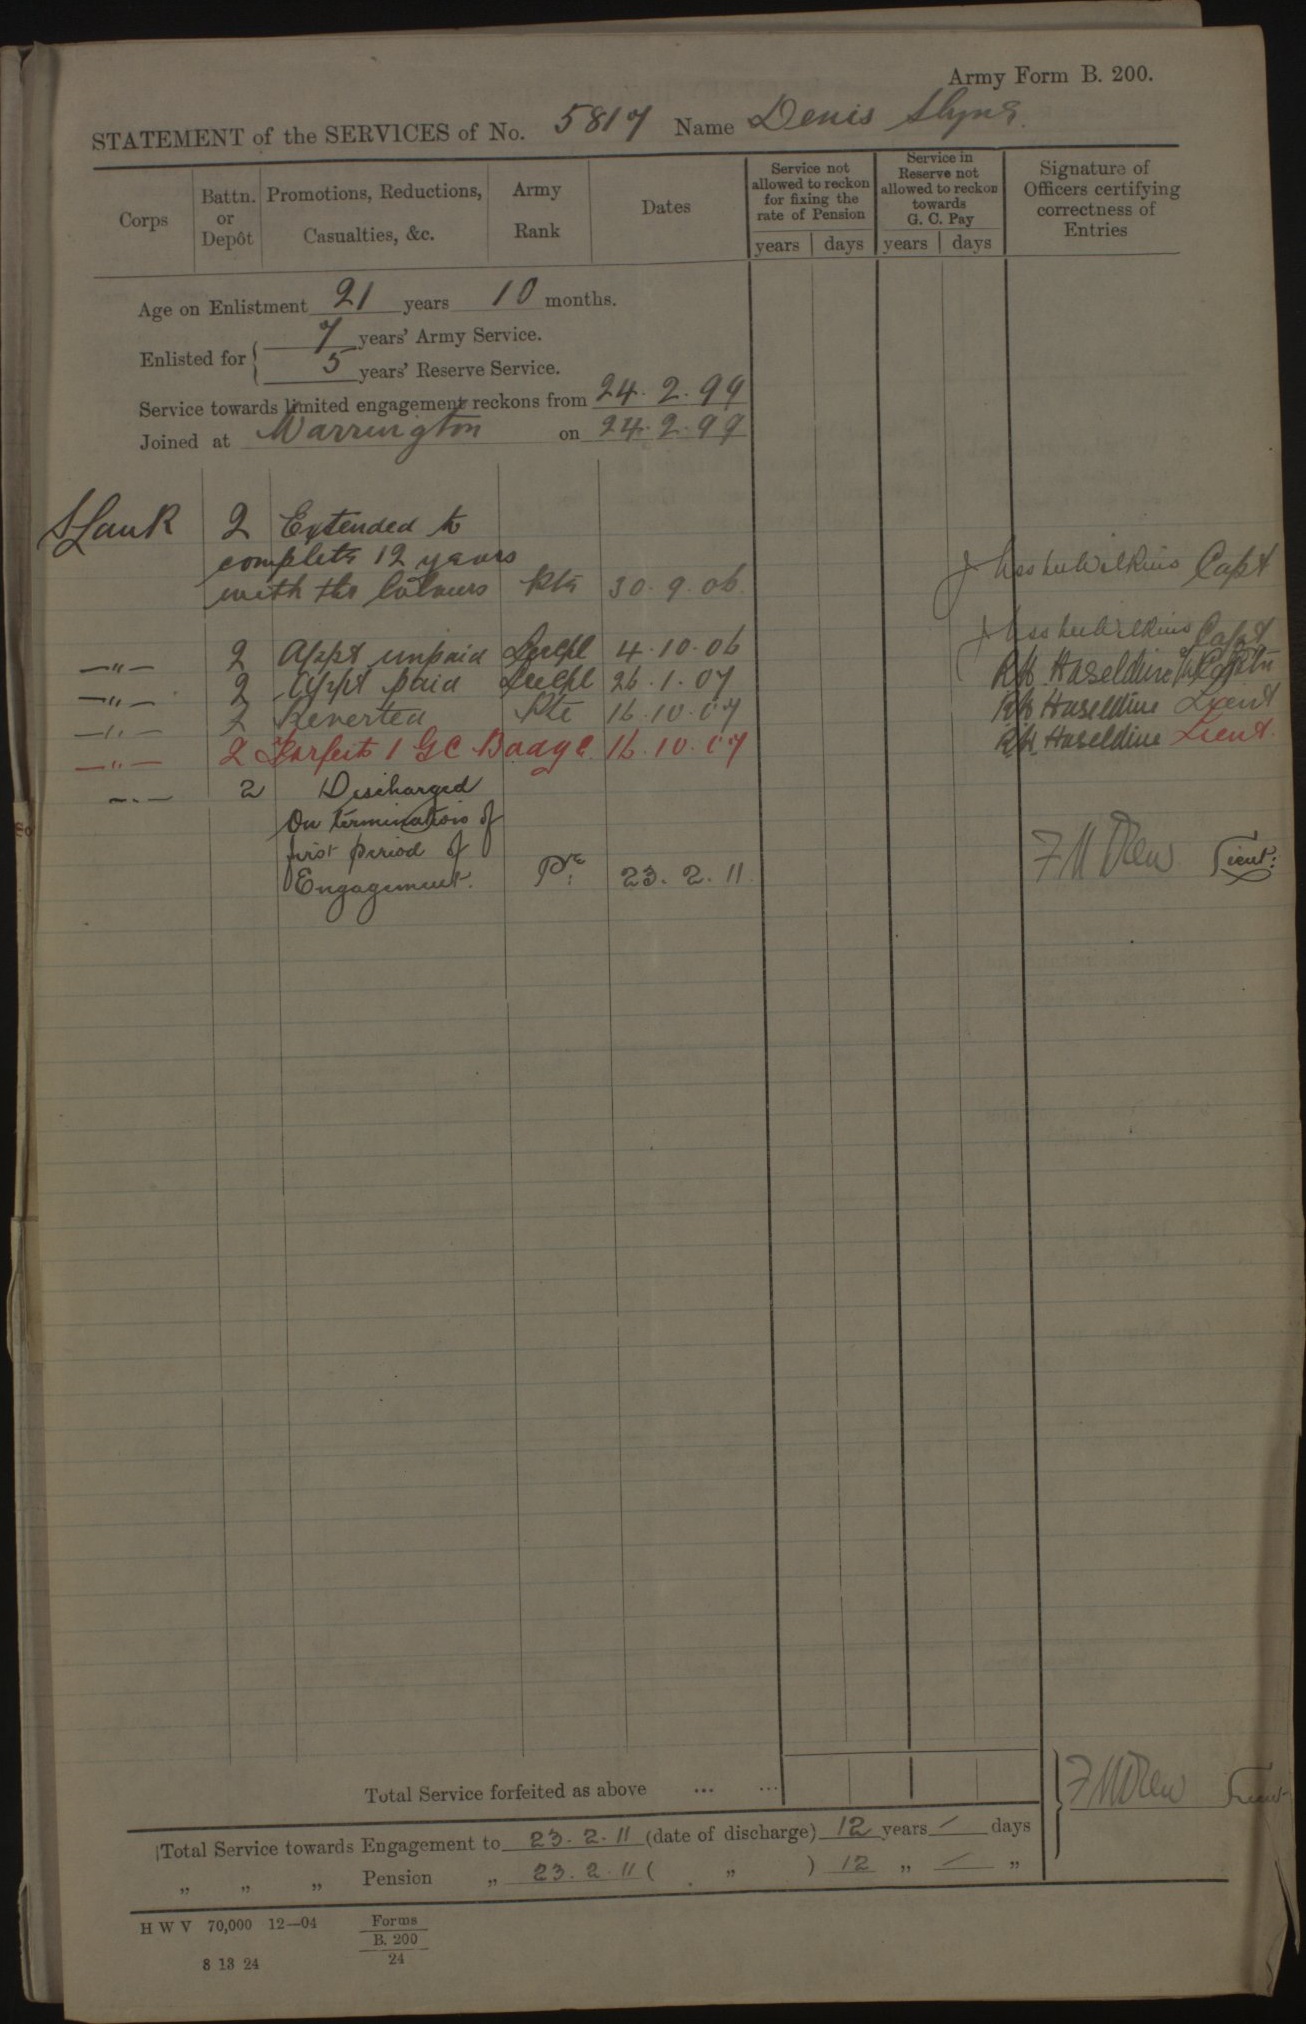 Army Form B. 200.
STATEMENT of the SERVICES of No. 5817 Name Denis
Corps
Battn. or Depôt
Promotions, Reductions, Casualties, &c.
Army Rank
Dates
Service not allowed to reckon for fixing the rate of Pension
years days
Service in Reserve not allowed to reckon towards G. C. Pay
years days
Signature of Officers certifying correctness of Entries
Age on Enlistment 21 years 10 months.
Enlisted for { 7 years' Army Service.
5 years' Reserve Service.
Service towards limited engagement reckons from 24.2.99
Joined at Warrington on 24.2.99
S Lan R 2 Extended to
complete 12 years
with the Colours Pte 30.9.06 Wilkins Capt
—"— 2 Appt unpaid Lcecpl 4.10.06 Wilkins Capt
—"— 2 Appt paid Lcecpl 26.1.07 RH Haseldine
—"— 2 Reverted Pte 16.10.07 RH Haseldine Lieut
—"— 2 Forfeits 1 GC Badge 16.10.07 RH Haseldine Lieut.
—"— 2 Discharged
On termination of
first period of
Engagement. Pte 23.2.11 F M Drew Lieut:
Total Service forfeited as above ... ...
F M Drew Lieut
Total Service towards Engagement to 23.2.11 (date of discharge) 12 years / days
„ „ „ Pension „ 23.2.11 ( „ ) 12 „ / „
H W V 70,000 12—04 Forms
B. 200
24
8 13 24